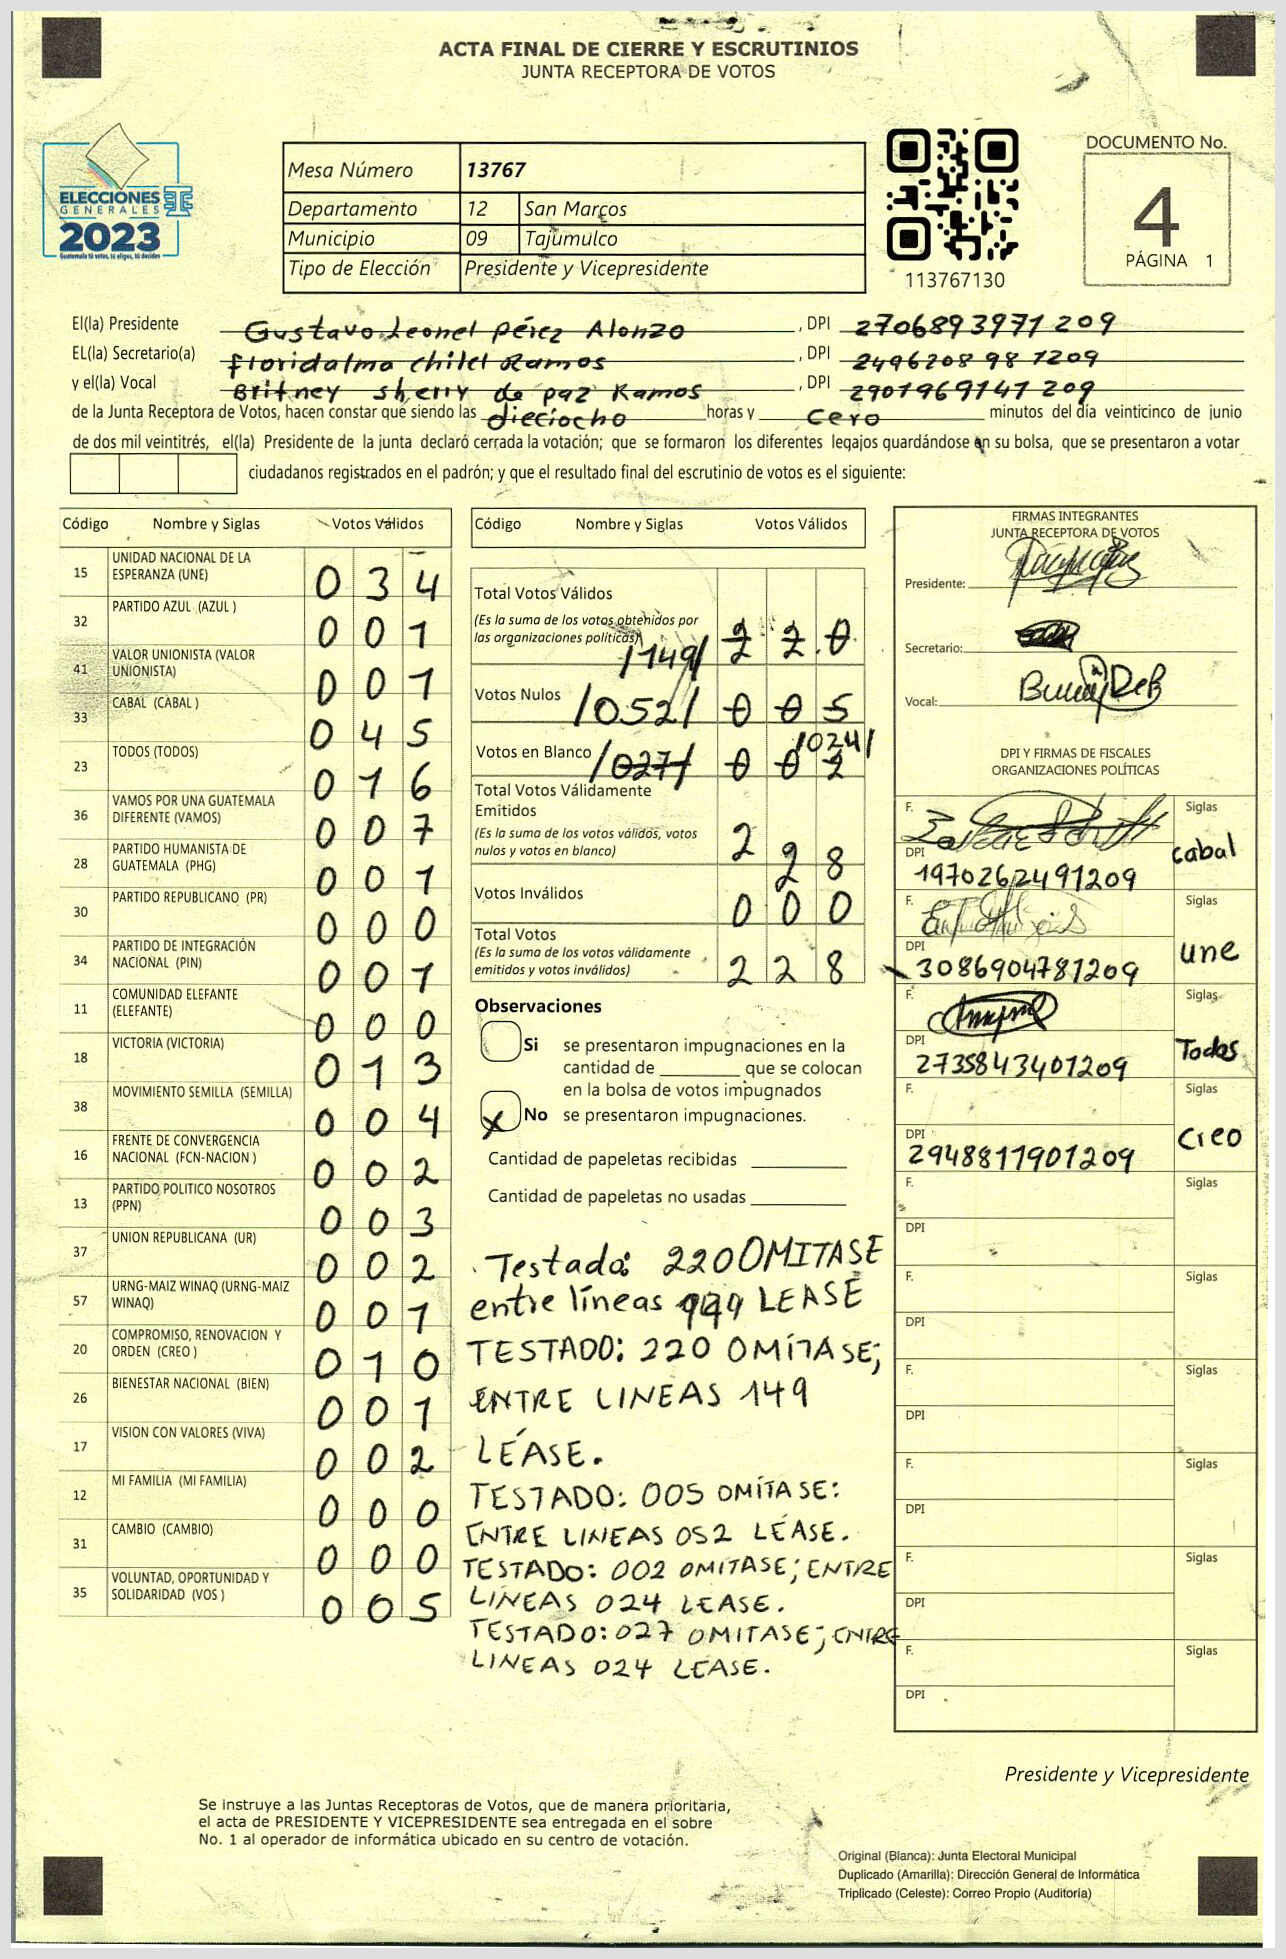 ACTA FINAL DE CIERRE Y ESCRUTINIOS
JUNTA RECEPTORA DE VOTOS
ELECCIONES
GENERALES
2023
Guatemala tú votes, tú eliges, tú decides
Mesa Número 13767
Departamento 12 San Marcos
Municipio 09 Tajumulco
Tipo de Elección Presidente y Vicepresidente
113767130
DOCUMENTO No.
4
PÁGINA 1
El(la) Presidente Gustavo Leonel Pérez Alonzo, DPI 2706893971209
EL(la) Secretario(a) Floridalma Chilel Ramos, DPI 2496208981209
y el(la) Vocal Britney Sherry de paz Ramos, DPI 2901969141209
de la Junta Receptora de Votos, hacen constar que siendo las dieciocho horas y cero minutos del día veinticinco de junio
de dos mil veintitrés, el(la) Presidente de la junta declaró cerrada la votación; que se formaron los diferentes legajos guardándose en su bolsa, que se presentaron a votar
ciudadanos registrados en el padrón; y que el resultado final del escrutinio de votos es el siguiente:
Código Nombre y Siglas Votos Válidos
15 UNIDAD NACIONAL DE LA ESPERANZA (UNE) 0 3 4
32 PARTIDO AZUL (AZUL ) 0 0 1
41 VALOR UNIONISTA (VALOR UNIONISTA) 0 0 1
33 CABAL (CABAL ) 0 4 5
23 TODOS (TODOS) 0 1 6
36 VAMOS POR UNA GUATEMALA DIFERENTE (VAMOS) 0 0 7
28 PARTIDO HUMANISTA DE GUATEMALA (PHG) 0 0 1
30 PARTIDO REPUBLICANO (PR) 0 0 0
34 PARTIDO DE INTEGRACIÓN NACIONAL (PIN) 0 0 1
11 COMUNIDAD ELEFANTE (ELEFANTE) 0 0 0
18 VICTORIA (VICTORIA) 0 1 3
38 MOVIMIENTO SEMILLA (SEMILLA) 0 0 4
16 FRENTE DE CONVERGENCIA NACIONAL (FCN-NACION ) 0 0 2
13 PARTIDO POLITICO NOSOTROS (PPN) 0 0 3
37 UNION REPUBLICANA (UR) 0 0 2
57 URNG-MAIZ WINAQ (URNG-MAIZ WINAQ) 0 0 1
20 COMPROMISO, RENOVACION Y ORDEN (CREO ) 0 1 0
26 BIENESTAR NACIONAL (BIEN) 0 0 1
17 VISION CON VALORES (VIVA) 0 0 2
12 MI FAMILIA (MI FAMILIA) 0 0 0
31 CAMBIO (CAMBIO) 0 0 0
35 VOLUNTAD, OPORTUNIDAD Y SOLIDARIDAD (VOS ) 0 0 5
Código Nombre y Siglas Votos Válidos
Total Votos Válidos
(Es la suma de los votos obtenidos por
las organizaciones políticas) /149/ 2 2 0
Votos Nulos /052/ 0 0 5
Votos en Blanco /027/ 0 0 2 /024/
Total Votos Válidamente
Emitidos
(Es la suma de los votos válidos, votos
nulos y votos en blanco) 2 2 8
Votos Inválidos 0 0 0
Total Votos
(Es la suma de los votos válidamente
emitidos y votos inválidos) 2 2 8
Observaciones
Si se presentaron impugnaciones en la
cantidad de ________ que se colocan
en la bolsa de votos impugnados
X No se presentaron impugnaciones.
Cantidad de papeletas recibidas
Cantidad de papeletas no usadas
Testado: 220 OMITASE
entre líneas LEASE
TESTADO: 220 OMÍTASE;
ENTRE LINEAS 149
LÉASE.
TESTADO: 005 OMÍTASE:
ENTRE LINEAS 052 LÉASE.
TESTADO: 002 OMITASE; ENTRE
LINEAS 024 LEASE.
TESTADO: 027 OMITASE; ENTRE
LINEAS 024 LEASE.
FIRMAS INTEGRANTES
JUNTA RECEPTORA DE VOTOS
Presidente:
Secretario:
Vocal:
DPI Y FIRMAS DE FISCALES
ORGANIZACIONES POLÍTICAS
F. Siglas
cabal
DPI
1970262491209
F. Siglas
une
DPI
3086904781209
F. Siglas
Todos
DPI
2735843401209
F. Siglas
creo
DPI
2948811901209
F. Siglas
DPI
F. Siglas
DPI
F. Siglas
DPI
F. Siglas
DPI
F. Siglas
DPI
F. Siglas
DPI
Presidente y Vicepresidente
Se instruye a las Juntas Receptoras de Votos, que de manera prioritaria,
el acta de PRESIDENTE Y VICEPRESIDENTE sea entregada en el sobre
No. 1 al operador de informática ubicado en su centro de votación.
Original (Blanca): Junta Electoral Municipal
Duplicado (Amarilla): Dirección General de Informática
Triplicado (Celeste): Correo Propio (Auditoría)